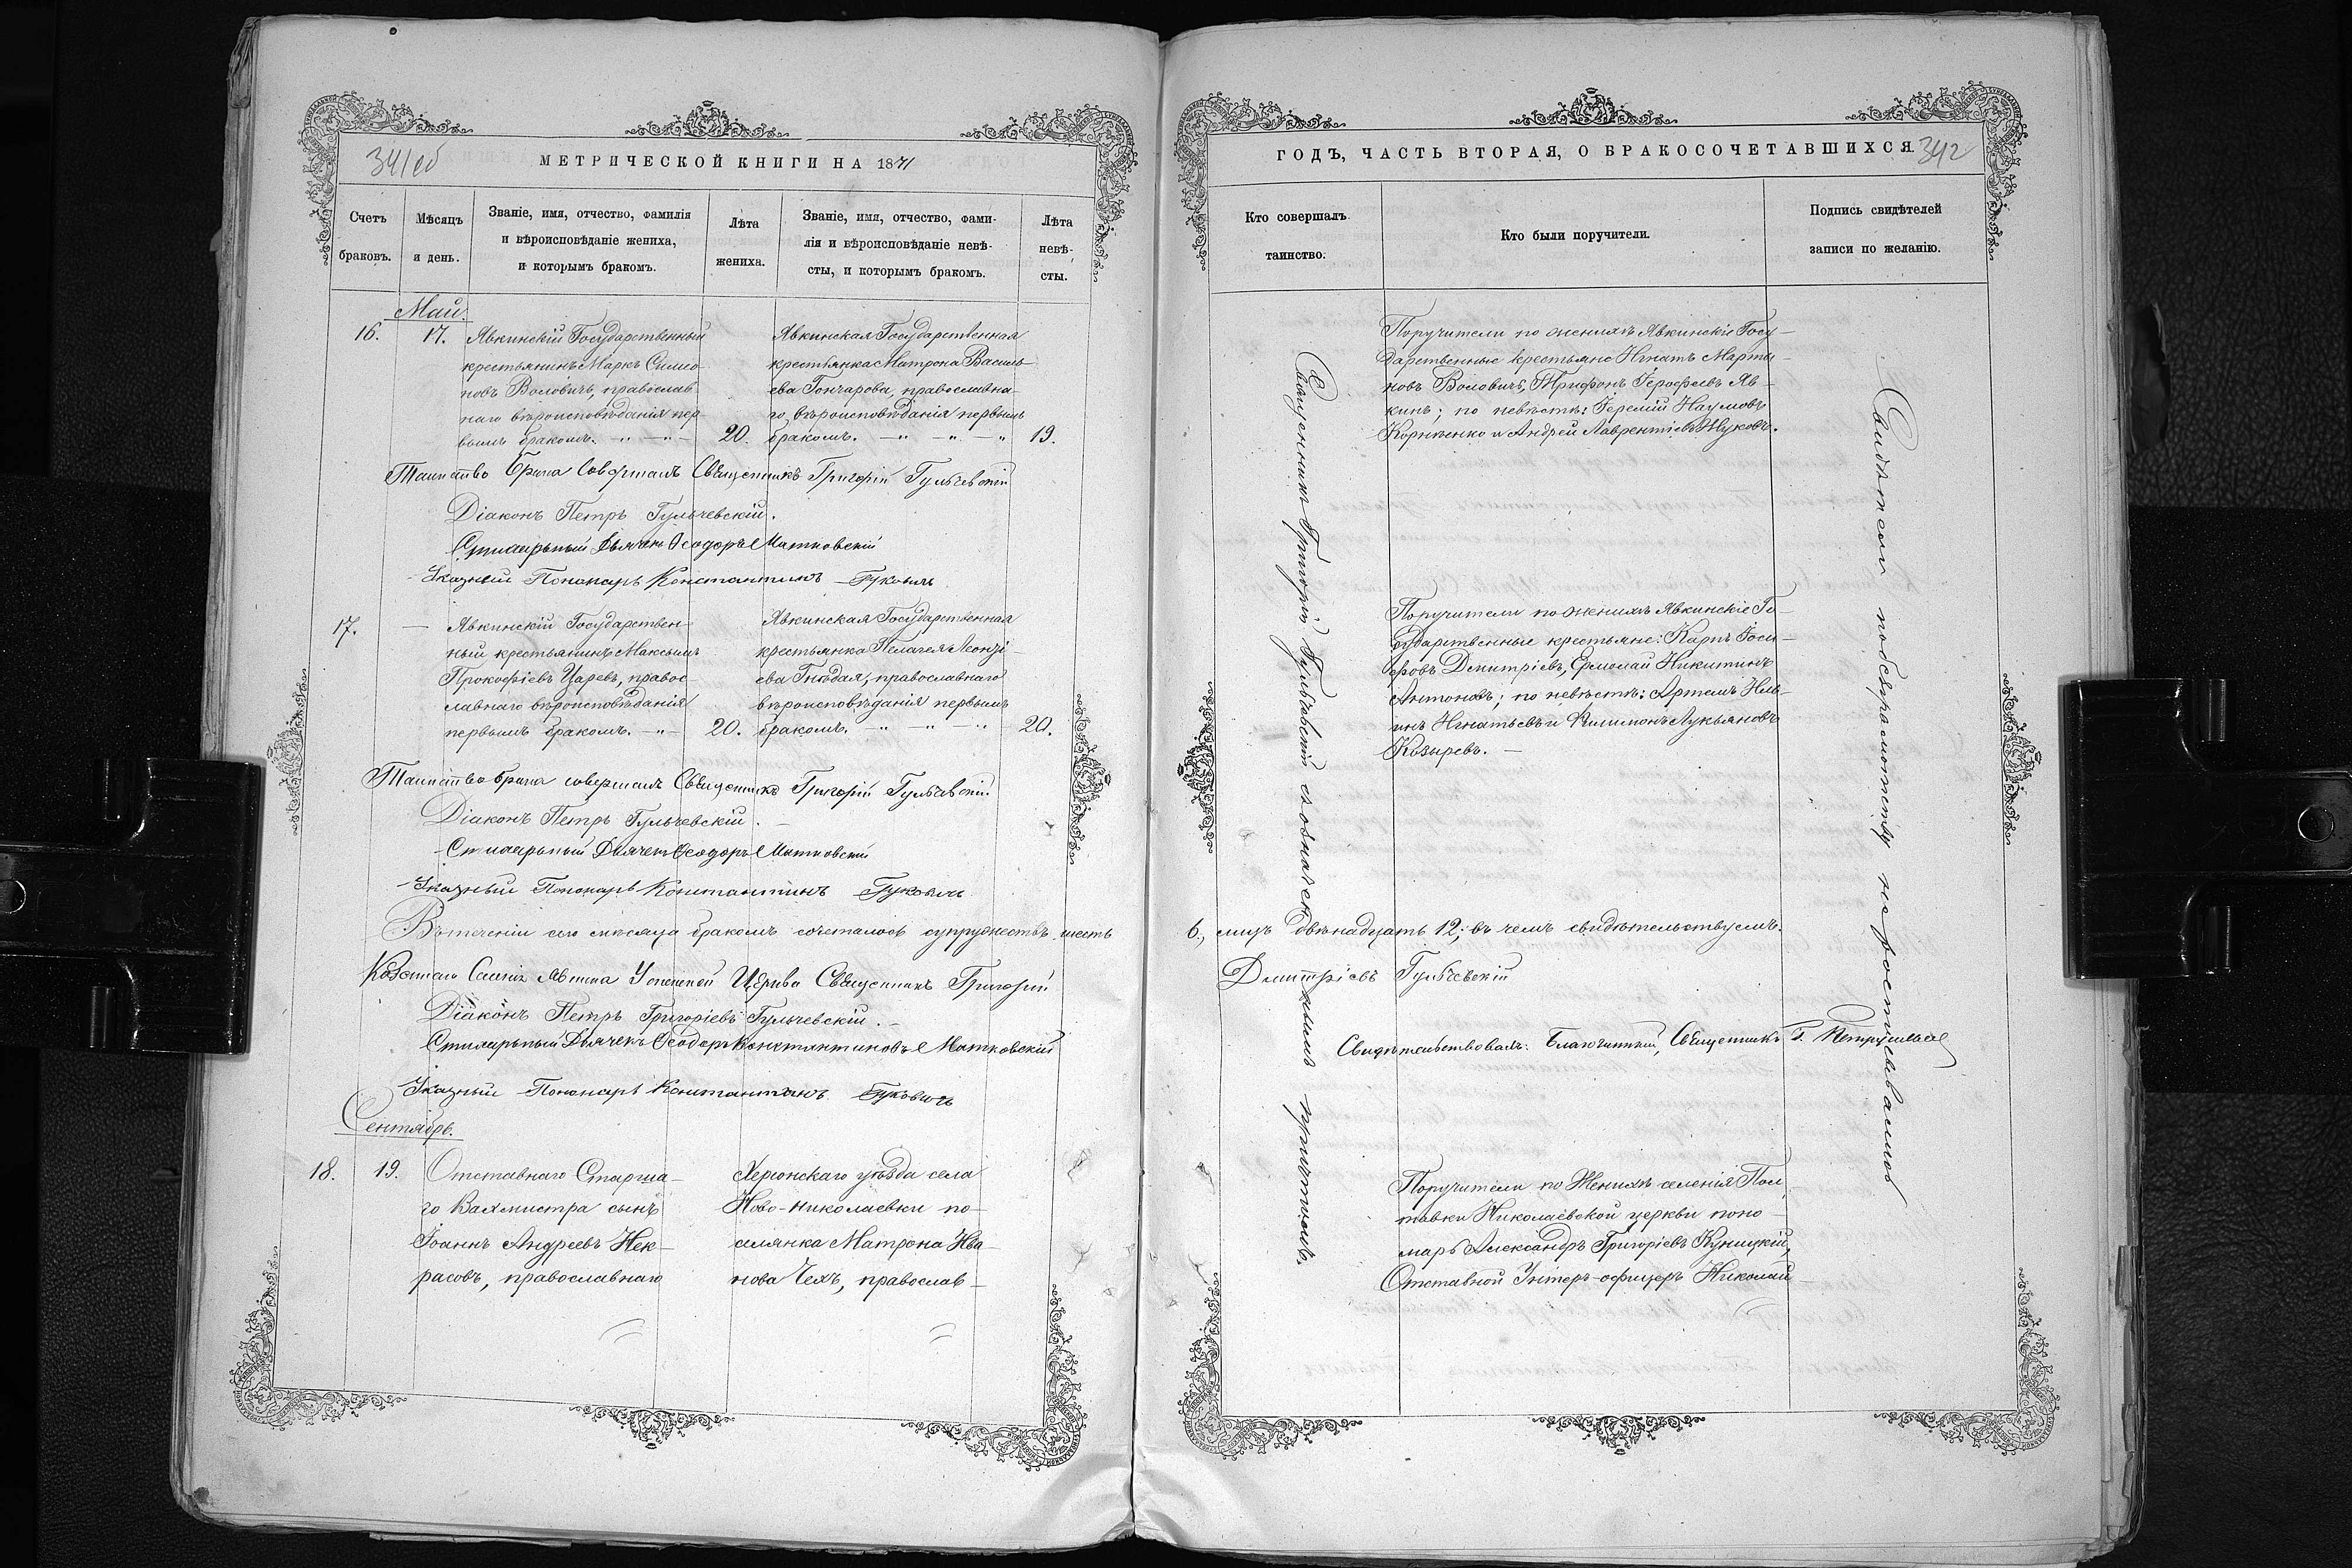 341об
МЕТРИЧЕСКОЙ КНИГИ НА 1871
Счетъ браковъ.
Мѣсяцъ и день.
Званіе, имя, отчество, фамилія
и вѣроисповѣданіе жениха,
и которымъ бракомъ.
Лѣта жениха.
Званіе, имя, отчество, фами-
лія и вѣроисповѣданіе невѣ-
сты, и которымъ бракомъ.
Лѣта невѣ-
сты.
Май.
16.
17.
Явкинскій Государственный
крестьянинъ Маркъ Симео
новъ Воловичъ, православ
наго вѣроисповѣданія пер
вымъ бракомъ.
20.
Явкинская Государственная
крестьянка Матрона Василь
ева Гончарова, православна
го, вѣроисповѣданія первымъ
бракомъ.
19.
Таинство брака совершалъ Священникъ Григорій Гульчевскій
Діаконъ Петръ Гульчевскій.
Стихарный Дьячекъ Ѳеодоръ Матковскій
Указный Пономарь Константинъ Гуковичъ
17.
Явкинскій Государствен-
ный крестьянинъ Максимъ
Прокофіевъ Царевъ, правос
лавнаго вѣроисповѣданія
первымъ бракомъ.
20.
Явкинская Государственная
крестьянка Пелагея Леонті
ева Гнѣдая, православнаго
вѣроисповѣданія первымъ
бракомъ.
20.
Таинство брака совершалъ Священникъ Григорій Гульчевскій
Діаконъ Петръ Гульчевскій.
Стихарный Дьячекъ Ѳеодоръ Матковскій
Указный Пономарь Константинъ Гуковичъ
Въ теченіи сего мѣсяца бракомъ сочеталось супружествъ шесть
Явкина Успенской Церкви Священникъ Григорій
Діаконъ Петръ Григоріевъ Гульчевскій.
Стихарный Дьячекъ Ѳеодоръ Константиновъ Матковскій
Указный Пономарь Константинъ Гуковичъ
Сентябрь.
18.
19.
Отставнаго Старша-
го Вахмистра сынъ
Іоаннъ Андреевъ Нек-
расовъ, православнаго
Херсонскаго уѣзда села
Ново-Николаевки по-
селянка Матрона Ива-
нова Чехъ, православ-
ГОДЪ, ЧАСТЬ ВТОРАЯ, О БРАКОСОЧЕТАВШИХСЯ
342
Кто совершалъ
таинство.
Кто были поручители.
Подпись свидѣтелей
записи по желанію.
Поручители по женихѣ Явкинскіе Госу-
дарственные крестьяне Игнатъ Марты-
новъ Воловичъ, Трифонъ Іерофѣевъ Яв-
кинъ; по невѣстѣ: Іеремій Наумовъ
Корнѣенко и Андрей Лаврентіевъ Жуковъ.
Поручители по женихѣ Явкинскіе Го-
сударственные крестьяне: Карпъ Іоси-
фовъ Дмитріевъ, Ермолай Никитинъ
Антоновъ; по невѣстѣ: Артемъ Иль-
инъ Игнатьевъ и Филимонъ Лукьяновъ
Козыревъ.
Священникъ Григорій Гульчевскій
причтомъ.
Свидѣтели по безграмотству не росписывались
6., лицъ двѣнадцать 12; въ чемъ свидѣтельствуемъ.
Дмитріевъ Гульчевскій
Свидѣтельствовалъ: Благочинный, Священникъ Г.
Поручители по Женихѣ селенія Пол
тавки Николаевской церкви поно-
марь Александръ Григоріевъ Куницкій,
Отставной Унтеръ-офицеръ Николай